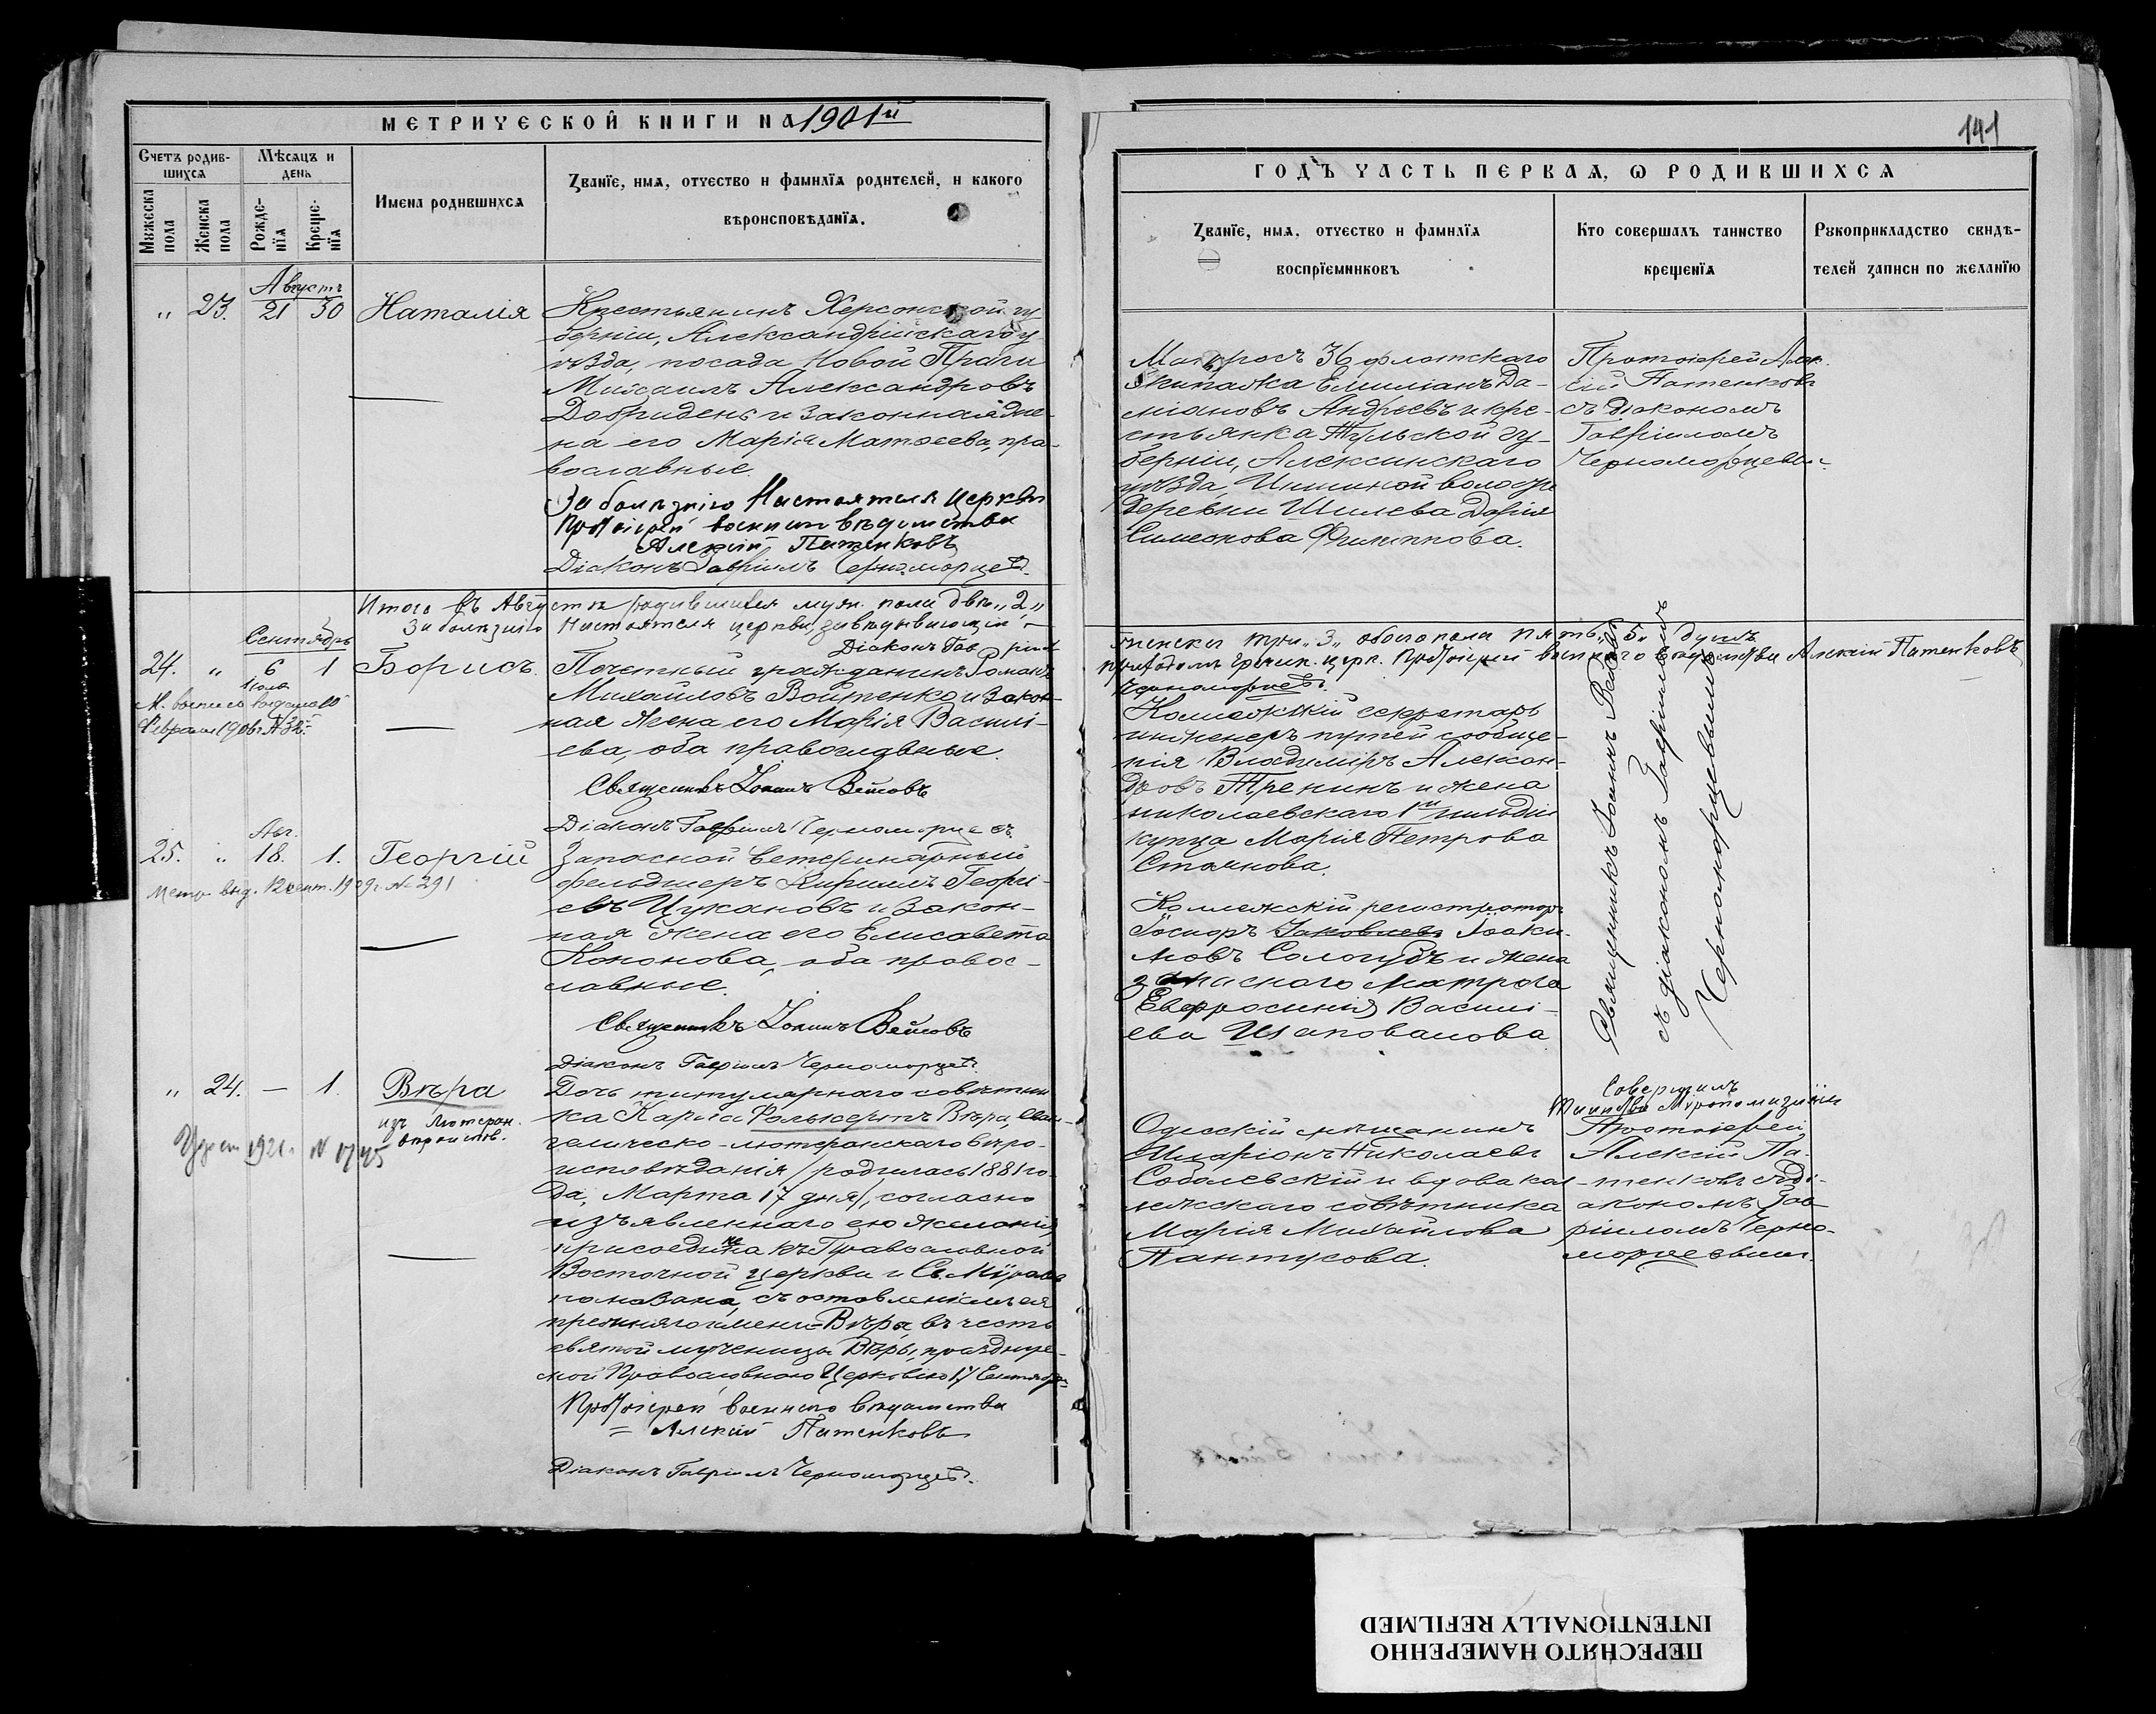 МЕТРИЧЕСКОЙ КНИГИ НА 1901й
Счетъ родив-
шихся
Мѣсяцъ и
день
Мужеска
пола
Женска
пола
Рожде-
нїя
Креще-
нїя
Имена родившихся
Званїе, имя, отчество и фамилїя родителей, и какого
вѣроисповѣданїя.
Августъ
" 23. 21 30 Наталія
Крестьянинъ Херсонской гу-
берніи, Александрійскаго у-
ѣзда, посада Новой Праги
Михаилъ Александровъ
Добридень и законная же-
на его Марія Матѳеева, пра-
вославные.
За болѣзнію Настоятеля церкви
Протоіерей военнаго вѣдомства
Алексій Патенковъ
Діаконъ Гавріилъ Черноморцевъ.
Итого въ Августѣ родившихся муж. пола два "2"
За болѣзнію Настоятеля церкви, завѣдывающій
Діаконъ Гавріилъ
Сентябрь
24. " 6 1 Борисъ.
Іюля
Февраля 1906 г. № 32.
Почетный гражданинъ Романъ
Михайловъ Войтенко и закон-
ная жена его Марія Василі-
ева, оба православные.
Священникъ Іоаннъ
Діаконъ Гавріилъ Черноморцевъ.
Авг.
25. " 18. 1. Георгій
Метр. выд. 12 сент. 1909 г. № 291
Запасной ветеринарный
фельдшеръ Кириллъ Георгі-
евъ Цукановъ и закон-
ная жена его Елисавета
Кононова, оба правос-
лавные.
Священникъ Іоаннъ
Діаконъ Гавріилъ Черноморцевъ.
" 24. — 1. Вѣра
изъ лютеран.
1921 г. № 1745
Дочь титулярнаго совѣтни-
ка Карла Фолькертъ Вѣра, еван-
гелическо-лютеранскаго вѣро-
исповѣданія /родилась 1881 го-
да, Марта 17 дня/, согласно
изъявленнаго ею желанія,
присоединена къ Православной
Восточной церкви и Св. Мѵромъ
помазана, съ оставленіемъ ея
прежняго имени=Вѣра, въ честь
святой мученицы Вѣры, празднуе-
мой Православною Церковію 17 Сентября
Протоіерей военнаго вѣдомства
= Алексій Патенковъ
Діаконъ Гавріилъ Черноморцевъ.
141
ГОДЪ ЧАСТЬ ПЕРВАЯ, Ѡ РОДИВШИХСЯ
Званїе, имя, отчество и фамилїя
воспрїемниковъ
Кто совершалъ таинство
крещенїя
Рукоприкладство свидѣ-
телей записи по желанїю
Матросъ 36 флотскаго
Экипажа Емиліанъ Да-
міановъ Андреевъ и кре-
стьянка Тульской гу-
берніи, Алексинскаго
уѣзда, волости
деревни Шилева Дарія
Симеонова Филиппова.
Протоіерей Алек-
сій Патенковъ
съ діакономъ
Гавріиломъ
Черноморцевы-
женска три "3" обоего пола пять "5" душъ
приходомъ церк. Протоіерей военнаго вѣдомства Алексій Патенковъ
Черноморцевъ.
Коллежскій секретарь
инженеръ путей сообще-
нія Владиміръ Алексан-
дровъ Тренинъ и жена
николаевскаго 1й гильдіи
купца Марія Петрова
Стоянова.
Коллежскій регистраторъ
Іосифъ Яковлевъ Іоаки-
мовъ Сологубъ и жена
запаснаго матроса
Евфросинія Василі-
ева Шаповалова
Священникъ Іоаннъ
съ діакономъ Гавріиломъ
Черноморцевымъ
Одесскій мѣщанинъ
Иларіонъ Николаевъ
Соболевскій и вдова кол-
лежскаго совѣтника
Марія Михайлова
Пантусова.
Совершилъ
Таинство Мѵропомазанія
Протоіерей
Алексій Па-
тенковъ съ ді-
акономъ Гав-
ріиломъ Черно-
морцевымъ.
ПЕРЕСНЯТО НАМЕРЕННО
INTENTIONALLY REFILMED